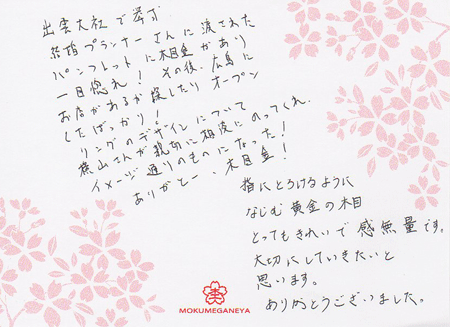 出雲大社で挙式
結婚プランナーさんに渡された
パンフレットに木目金があり
一目惚れ! その後、広島に
お店があるか探したり オープン
したばっかり!
リングのデザインについて
横山さんが親切に相談にのってくれ、
イメージ通りのものになった!
ありがとー、木目金!
指にとろけるように
なじむ黄金の木目
とってもきれいで感無量です。
大切にしていきたいと
思います。
ありがとうございました。
MOKUMEGANEYA